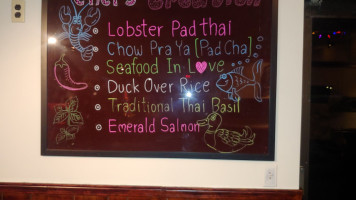 Chef's Creation
Lobster Pad thai
Chow Pra Ya [Pad Cha]
Seafood In Love
Duck Over Rice
Traditional Thai Basil
Emerald Salmon